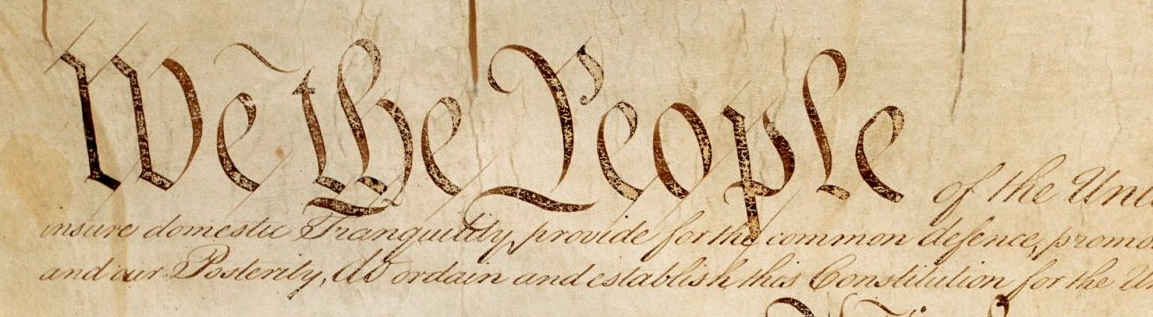 We the People of the
insure domestic Tranquility, provide for the common defence,
and our Posterity, do ordain and establish this Constitution for the